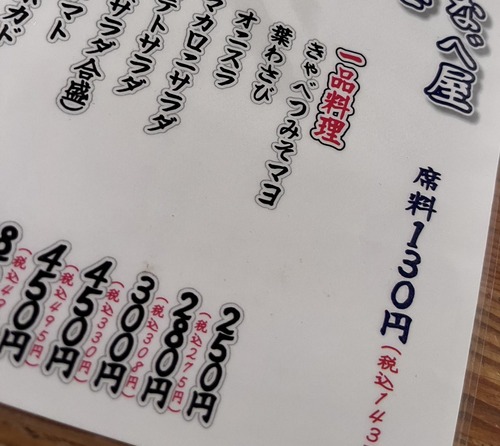 なべ屋
席料130円(税込143
一品料理
きゃべつみそマヨ
250円(税込275円)
葉わさび
280円(税込308円)
オニスラ
300円(税込330円)
マカロニサラダ
450円(税込495円)
テトサラダ
450円
サラダ合盛)
マト
カド